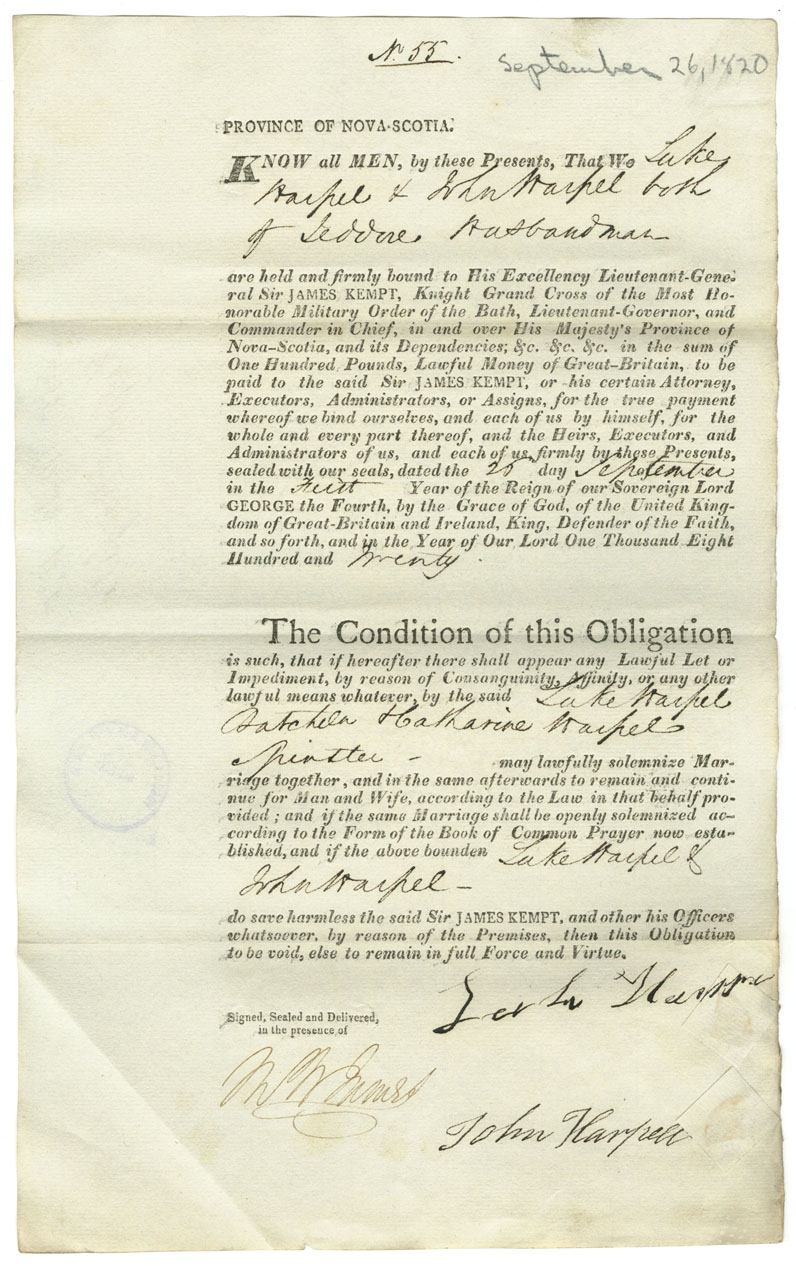 No. 55.
September 26, 1820
PROVINCE OF NOVA-SCOTIA.
KNOW all MEN, by these Presents, That We Luke
Harpel & John Harpel both
of Jeddore Husbandman
are held and firmly bound to His Excellency Lieutenant-Gene-
ral Sir JAMES KEMPT, Knight Grand Cross of the Most Ho-
norable Military Order of the Bath, Lieutenant-Governor, and
Commander in Chief, in and over His Majesty's Province of
Nova-Scotia, and its Dependencies; &c. &c. &c. in the sum of
One Hundred Pounds, Lawful Money of Great-Britain, to be
paid to the said Sir JAMES KEMPT, or his certain Attorney,
Executors, Administrators, or Assigns, for the true payment
whereof we bind ourselves, and each of us by himself, for the
whole and every part thereof, and the Heirs, Executors, and
Administrators of us, and each of us, firmly by these Presents,
sealed with our seals, dated the day September
in the First Year of the Reign of our Sovereign Lord
GEORGE the Fourth, by the Grace of God, of the United King-
dom of Great-Britain and Ireland, King, Defender of the Faith,
and so forth, and in the Year of Our Lord One Thousand Eight
Hundred and Twenty.
The Condition of this Obligation
is such, that if hereafter there shall appear any Lawful Let or
Impediment, by reason of Consanguinity, Affinity, or any other
lawful means whatever, by the said Luke Harpel
Batchelr & Catharine Harpel
Spinster - may lawfully solemnize Mar-
riage together, and in the same afterwards to remain and conti-
nue for Man and Wife, according to the Law in that behalf pro-
vided; and if the same Marriage shall be openly solemnized ac-
cording to the Form of the Book of Common Prayer now esta-
blished, and if the above bounden Luke Harpel &
John Harpel -
do save harmless the said Sir JAMES KEMPT, and other his Officers
whatsoever, by reason of the Premises, then this Obligation
to be void, else to remain in full Force and Virtue.
Signed, Sealed and Delivered,
in the presence of
John Harpell